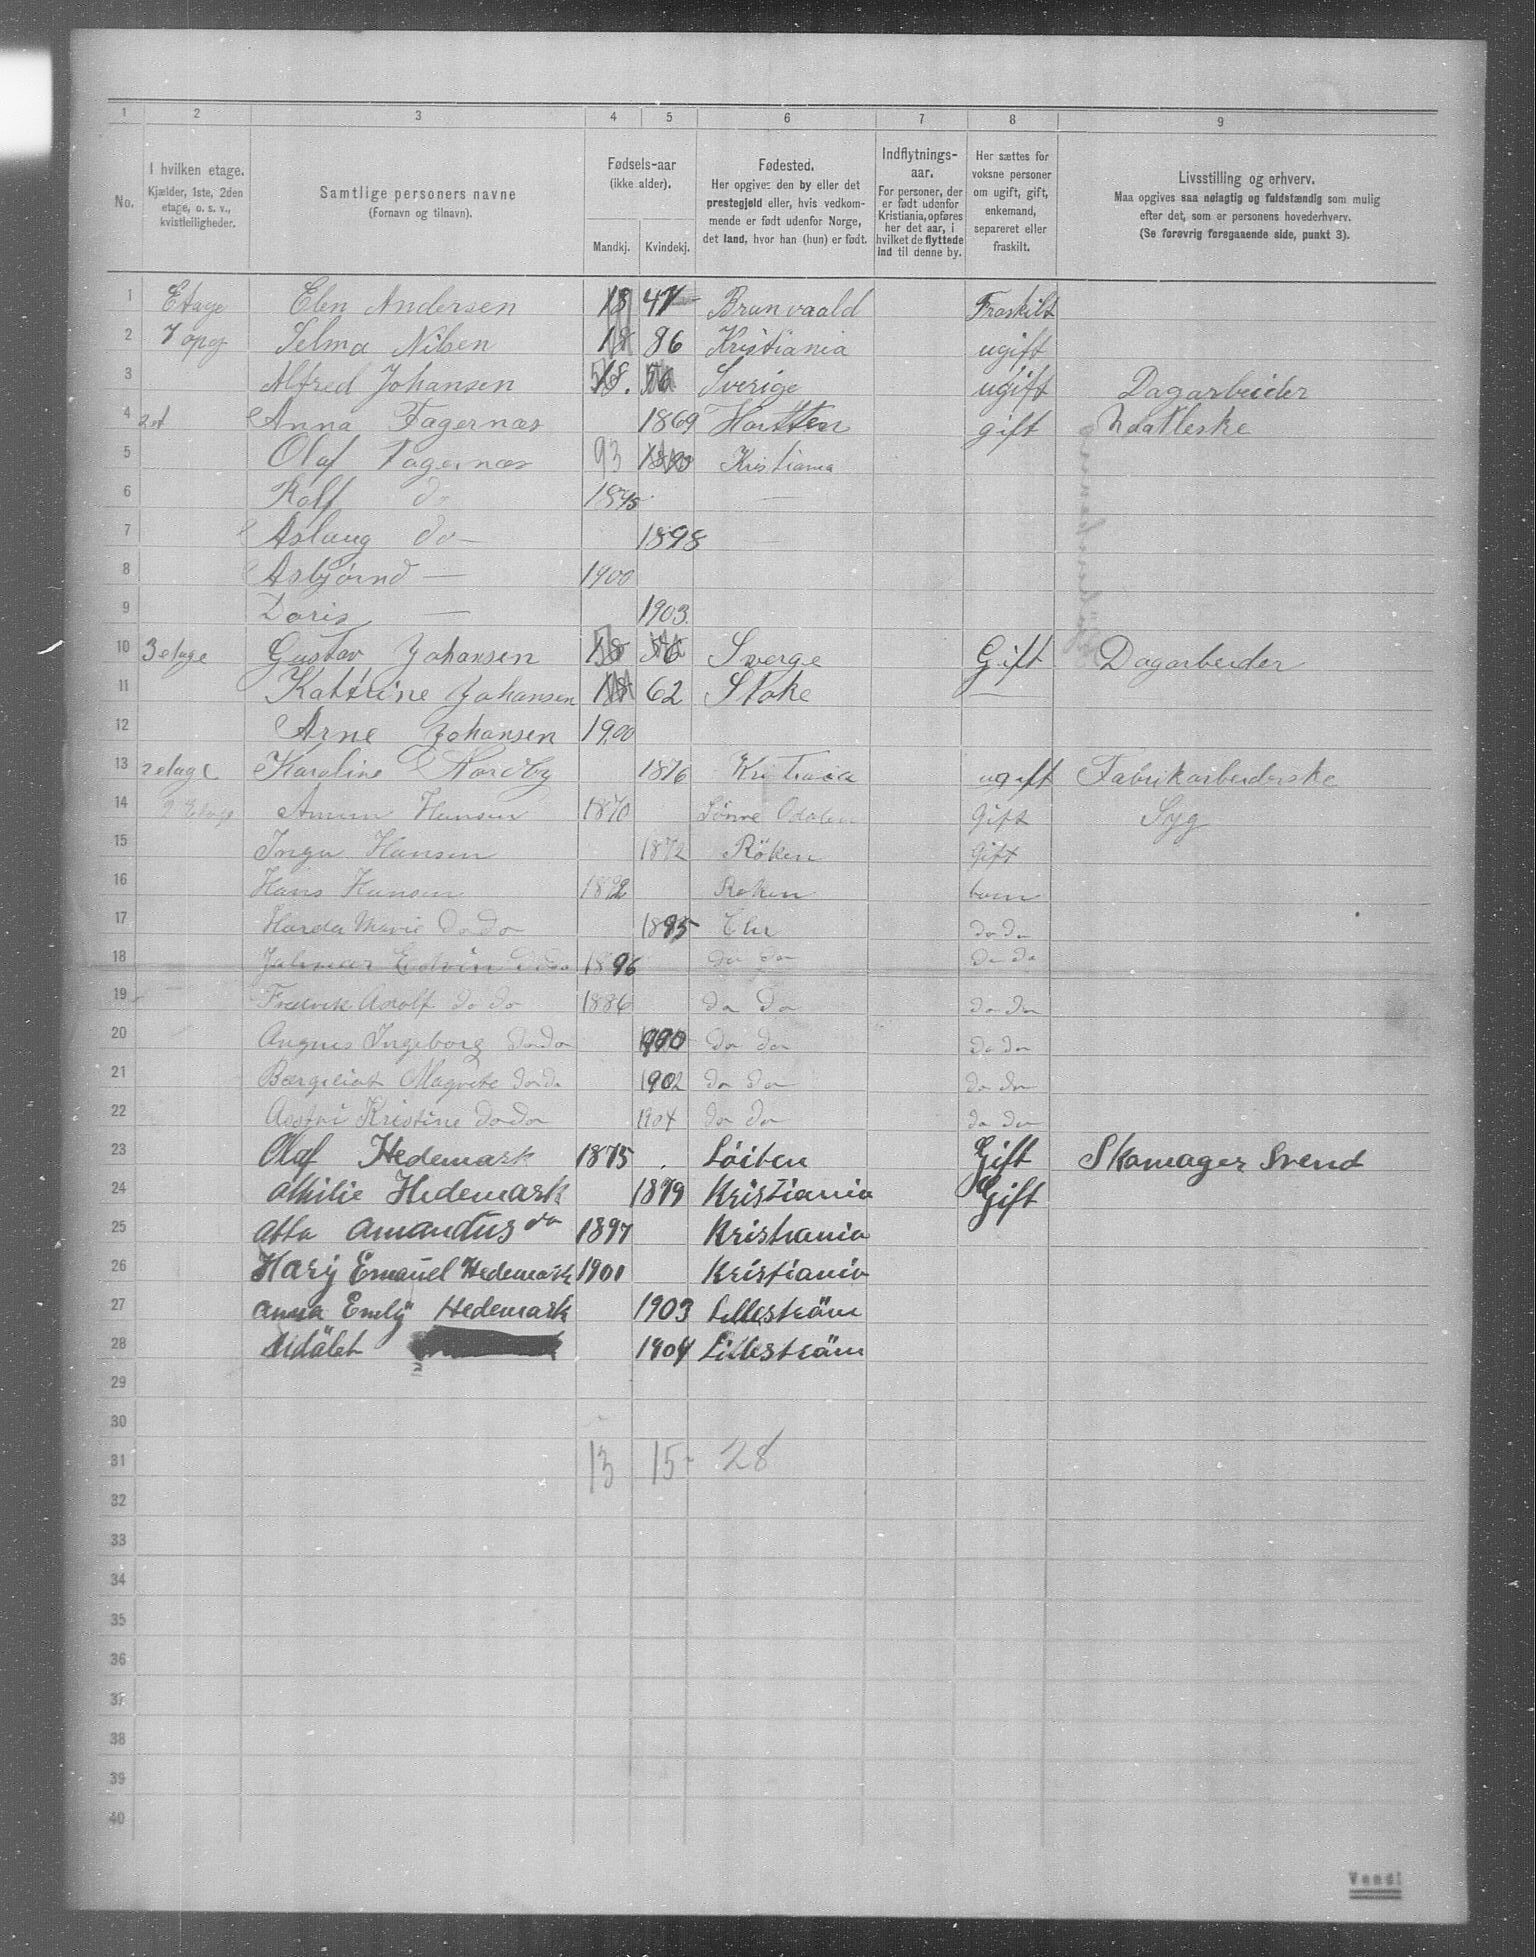 1 2 3 4 5 6 7 8 9
No. I hvilken etage. Kjælder, 1ste, 2den etage, o. s. v., kvistleiligheder. Samtlige personers navne (Fornavn og tilnavn). Fødsels-aar (ikke alder). Mandkj. Kvindekj. Fødested. Her opgives den by eller det prestegjeld eller, hvis vedkommende er født udenfor Norge, det land, hvor han (hun) er født. Indflytnings-aar. For personer, der er født udenfor Kristiania, opføres her det aar, i hvilket de flyttede ind til denne by. Her sættes for voksne personer om ugift, gift, enkemand, separeret eller fraskilt. Livsstilling og erhverv. Maa opgives saa nøiagtig og fuldstændig som mulig efter det, som er personens hovederhverv. (Se forøvrig foregaaende side, punkt 3).
1 Etage Elen Andersen 18 47 Brunvaald Fraskilt
2 1 opg Selma Nilsen 18 86 Kristiania ugift
3 Alfred Johansen 18. 56 Sverige ugift Dagarbeider
4 2et Anna Fagernæs 1869 Hortten gift
5 Olaf Fagernæs 93 Kristiania
6 Rolf do 1895 —
7 Aslaug do — 1898 —
8 Asbjørnd — 1900
9 Doris — 1903.
10 3 etage Gustav Johansen 58 Sverge Gift Dagarbeider
11 Katrine Johansen 18 62 Stoke —
12 Arne Johansen 1900
13 2 etage Karoline Nordby 1876 Kristiania ugift Fabrikarbeiderske
14 2 Etage Anton Hansen 1870 Sönre Odalen Gift Syg
15 Inga Hansen 1872 Röken Gift
16 Hans Hansen 1892 Røken barn
17 Harda Marie do do 1895 Chr do do
18 Jalmar Edvin do do 1896 do do do do
19 Fredrik Adolf do do 1886 do do do do
20 Augnes Ingeborg do do 1900 do do do do
21 Bærgliot Magrete do do 1902 do do do do
22 Aastri Kristine do do 1904 do do do do
23 Olaf Hedemark 1875 Löiten Gift Skomager Svend
24 Amilie Hedemark 1879 Kristiania Gift
25 Otto Amandus do 1897 Kristiania
26 Harij Emanuel Hedemark 1901 Kristiania
27 Anna Emelij Hedemark 1903 Lillesträm
28 Udöbt 1904 Lillesträm
29
30
31 13 15 28
32
33
34
35
36
37
38
39
40
Vend!